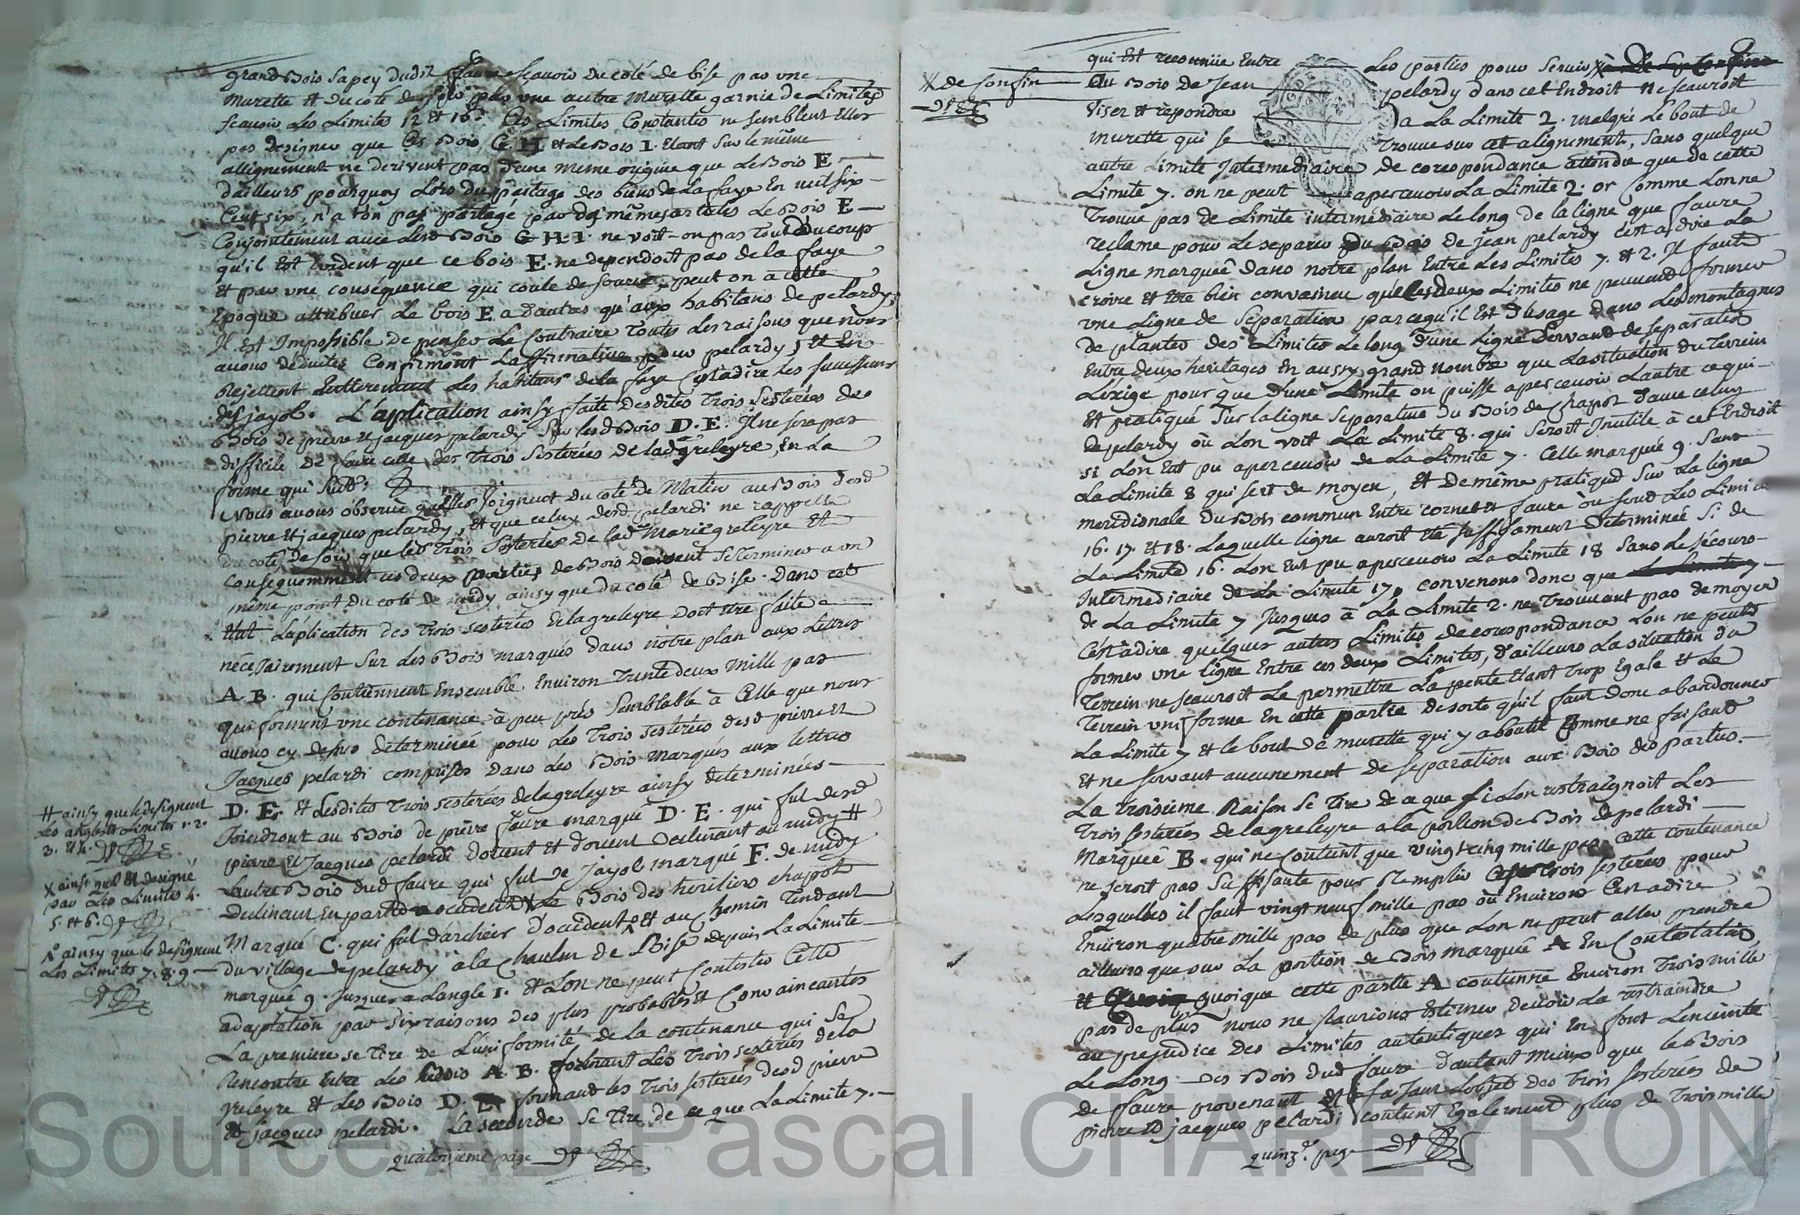 grand Bois Sapey dudit faure scavoir du coté de bise par une
Murette et du coté de soir par une autre Murette garnie de Limites
scavoir Les Limites 12 et 16. Ces Limites Constantes ne semblent elles
pas designer que Ces Bois G H et Le Bois I Etant Sur le même
allignement ne derivent pas d'une meme origine que Le Bois E
dailleurs pourquoy Lors du partage des biens de la faye En mil six
Cent six, n'a ton pas partagé par les mêmes articles Le Bois E
Conjointement avec Lesd Bois G. H. I. ne voit-on pas Tout d'un coup
qu'il Est Evident que ce bois E. ne dependoit pas de la faye
et par une consequence qui coule de source, peut on a cette
Epoque attribuer Le bois E a d'autres qu'aux habitans de pelardy,
Il Est Impossible de penser Le Contraire Toutes Les raisons que nous
avons deduites Confirment Laffirmative pour pelardy, et En
Rejettent Entierement Les habitans de la faye C'estadire les successeurs
des jayol. L'application ainsy faite desdites Trois Sesterées de
Bois de pierre et jacques pelardy Sur lesd Bois D. E. Il ne sera pas
difficile de faire celle des Trois Sesterées de lad greleyre En La
forme qui Suit.
Nous avons observé qu'elles Joignent du coté de Matin au Bois desd
pierre et jacques pelardy, et que celuy desd pelardi ne rappelle
du coté de soir que les Trois Sesterées de lad Marie greleyre Et
Consequemment ces deux parties de Bois doivent se Terminer a un
même point du coté de midy ainsy que du coté de Bise. Dans cet
Etat L'aplication des Trois sesterées de la greleyre doit etre faite
nécessairement Sur Les Bois marqués dans nôtre plan aux Lettres
A. B. qui Contiennent Ensemble Environ Trente deux Mille pas
qui forment une contenance à peu prés Semblable à Celle que nous
avons cy dessus determinée pour Les Trois sesterées desd pierre et
Jacques pelardi comprises dans Les Bois Marqués aux lettres
D. E. et Lesdites Trois sesterées de la greleyre ainsy determinées
Joindront au Bois de pierre faure marqué D. E. qui fut desd
pierre et Jacques pelardi devent et dorient declinant au midy #
Lautre Bois dud faure qui fut de Jayol marqué F. de midy
Declinant En partie a occident X Le Bois des heritiers chapot
Marqué C. qui fut darcheir d'occident ^ et au Chemin Tendant
du village de pelardy à la Chaulm de Bise depuis La Limite
marquée 9. Jusques a Langle 1. et Lon ne peut Contester Cette
adaptation par six raisons des plus probables et Convaincantes
La premiere se tire de L'uniformité de la contenance qui se
Rencontre Entre Les Bois A. B. formant Les Trois sesterées de la
greleyre et Les Bois D. E. formant les Trois sesterées desd pierre
et jacques pelardi. La seconde se tire de ce que La Limite 7.
quatorzieme page
# ainsy que le designent
Les angles et Limites 1. 2.
3. et 4.
X ainsi quil Est designé
par Les Limites 4.
5. et 6.
^ ainsy que le designent
Les Limites 7. 8. 9
X de Confin
qui Est reconnüe Entre Les parties pour Servir X de Confin
du Bois de Jean pelardy dans cet Endroit ne scauroit
Viser et repondre a La Limite 2. malgré Le bout de
murette qui se Trouve sur cet alignement, Sans quelque
autre Limite Intermediaire de corespondance attendu que de cette
Limite 7. on ne peut apercevoir La Limite 2. or Comme Lon ne
Trouve pas de Limite intermediaire Le long de la ligne que faure
reclame pour Le separer du Bois de jean pelardy c'est a dire La
Ligne marquée dans notre plan Entre Les Limites 7. et 2. Il faut
croire et Etre bien convaincu que Les deux Limites ne peuvent former
une Ligne de Separation parcequ'il Est d'usage dans Les montagnes
de planter des Limites Le long d'une Ligne Servant de separation
Entre deux heritages En aussy grand nombre que La situation du Terrein
L'exige pour que d'une Limite on puisse apercevoir L'autre ce qui
Est pratiqué Sur la ligne Separative du Bois de Chapot d'avec celuy
de pelardy où Lon voit La Limite 8. qui Seroit Inutile à cet Endroit
si Lon Eut pu apercevoir de La Limite 7. Celle marquée 9. Sans
La Limite 8 qui sert de moyen, Et de même pratiqué Sur La ligne
meridionale du Bois commun Entre cornet et faure où sont Les Limites
16. 17. et 18. Laquelle ligne auroit Eté suffisament Determinée Si de
La Limite 16. Lon Eut pu apercevoir La Limite 18 Sans Le secours
Intermediaire de La Limite 17, convenons donc que La Limite 7
de La Limite 7 Jusques à La Limite 2. ne Trouvant pas de moyen
C'est à dire quelques autres Limites de corespondance Lon ne peut
former une ligne Entre ces deux Limites, d'ailleurs La situation du
Terrein ne scauroit Le permettre La pente Etant Trop Egale et Le
Terrein uniforme En cette partie de sorte qu'il faut donc abandonner
La Limite 7 et le bout de murette qui y aboutit Comme ne faisant
et ne servant aucunement de separation aux Bois des parties.
La troisieme Raison se tire de ce que si Lon restraignoit Les
Trois sesterées de la greleyre a la portion de Bois de pelardi
Marquée B. qui ne Contient que vingt cinq mille pas Cette contenance
ne seroit pas Suffisante pour Remplir Ces Trois sesterées pour
Lesquelles il faut vingt neuf mille pas ou Environ C'estadire
Environ quatre mille pas de plus que Lon ne peut aller prendre
ailleurs que sur La portion de Bois marquée A En Contestation
et quoique cette partie A contienne Environ Trois mille
pas de plus nous ne scaurions Estimer devoir La restraindre
au prejudice des Limites autentiques qui En font Lenceinte
Le Long des Bois dud faure d'autant mieux que le Bois
de faure provenant et faisant Lobjet des Trois sesterées de
pierre et jacques pelardi contient Egalement plus de Trois mille
quinz.e page
Source AD Pascal CHAREYRON